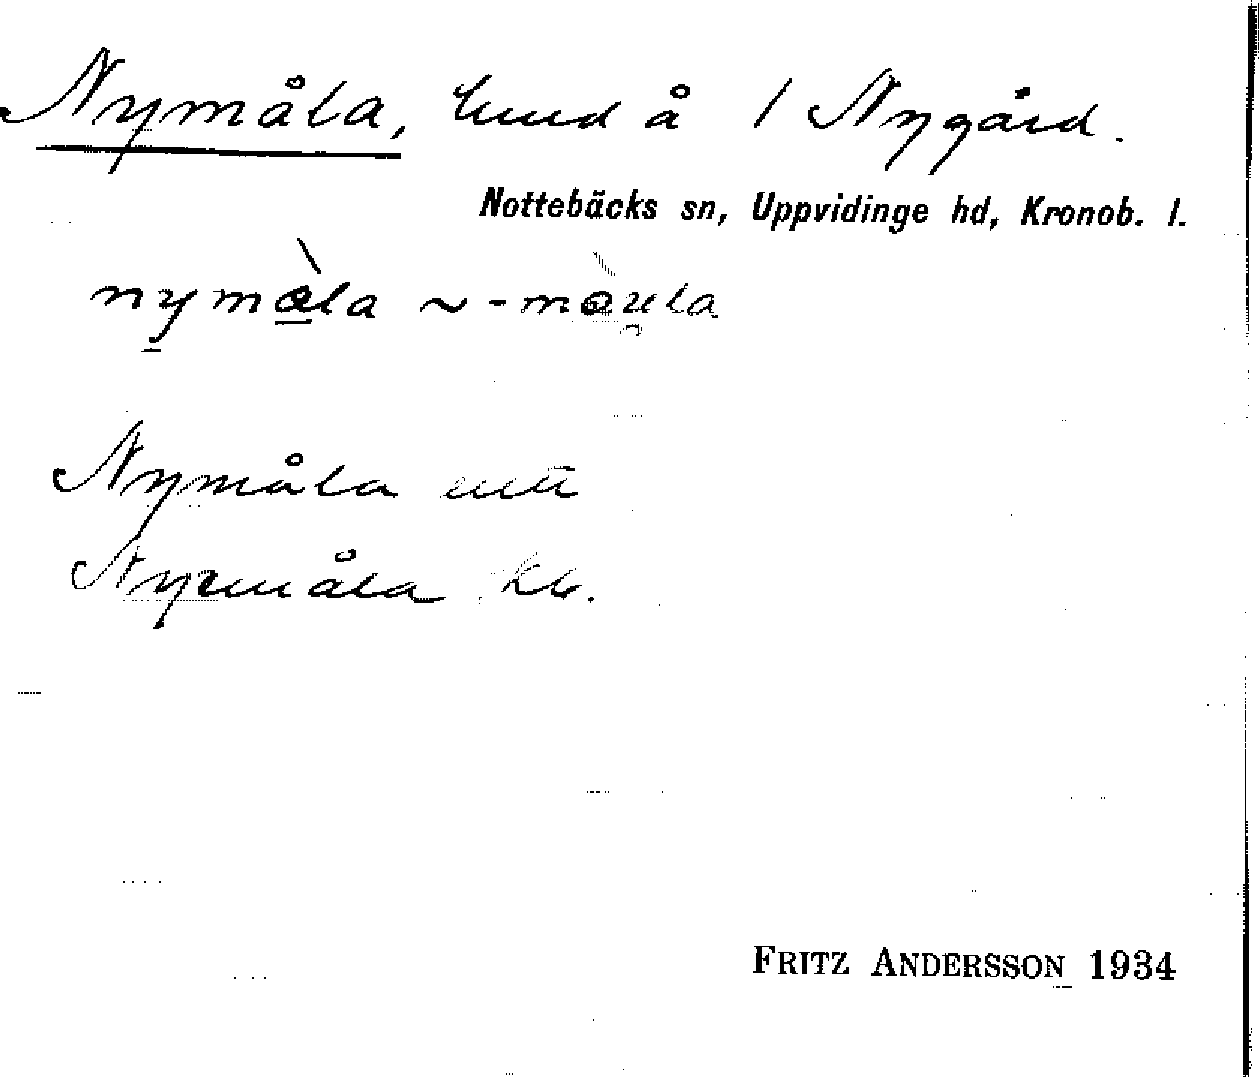 Nymåla, lund å 1 Nygård.
Nottebäcks sn, Uppvidinge hd, Kronob. l.
nymåla ~ -måula
Nymåla
Nymåla kb.
FRITZ ANDERSSON 1934